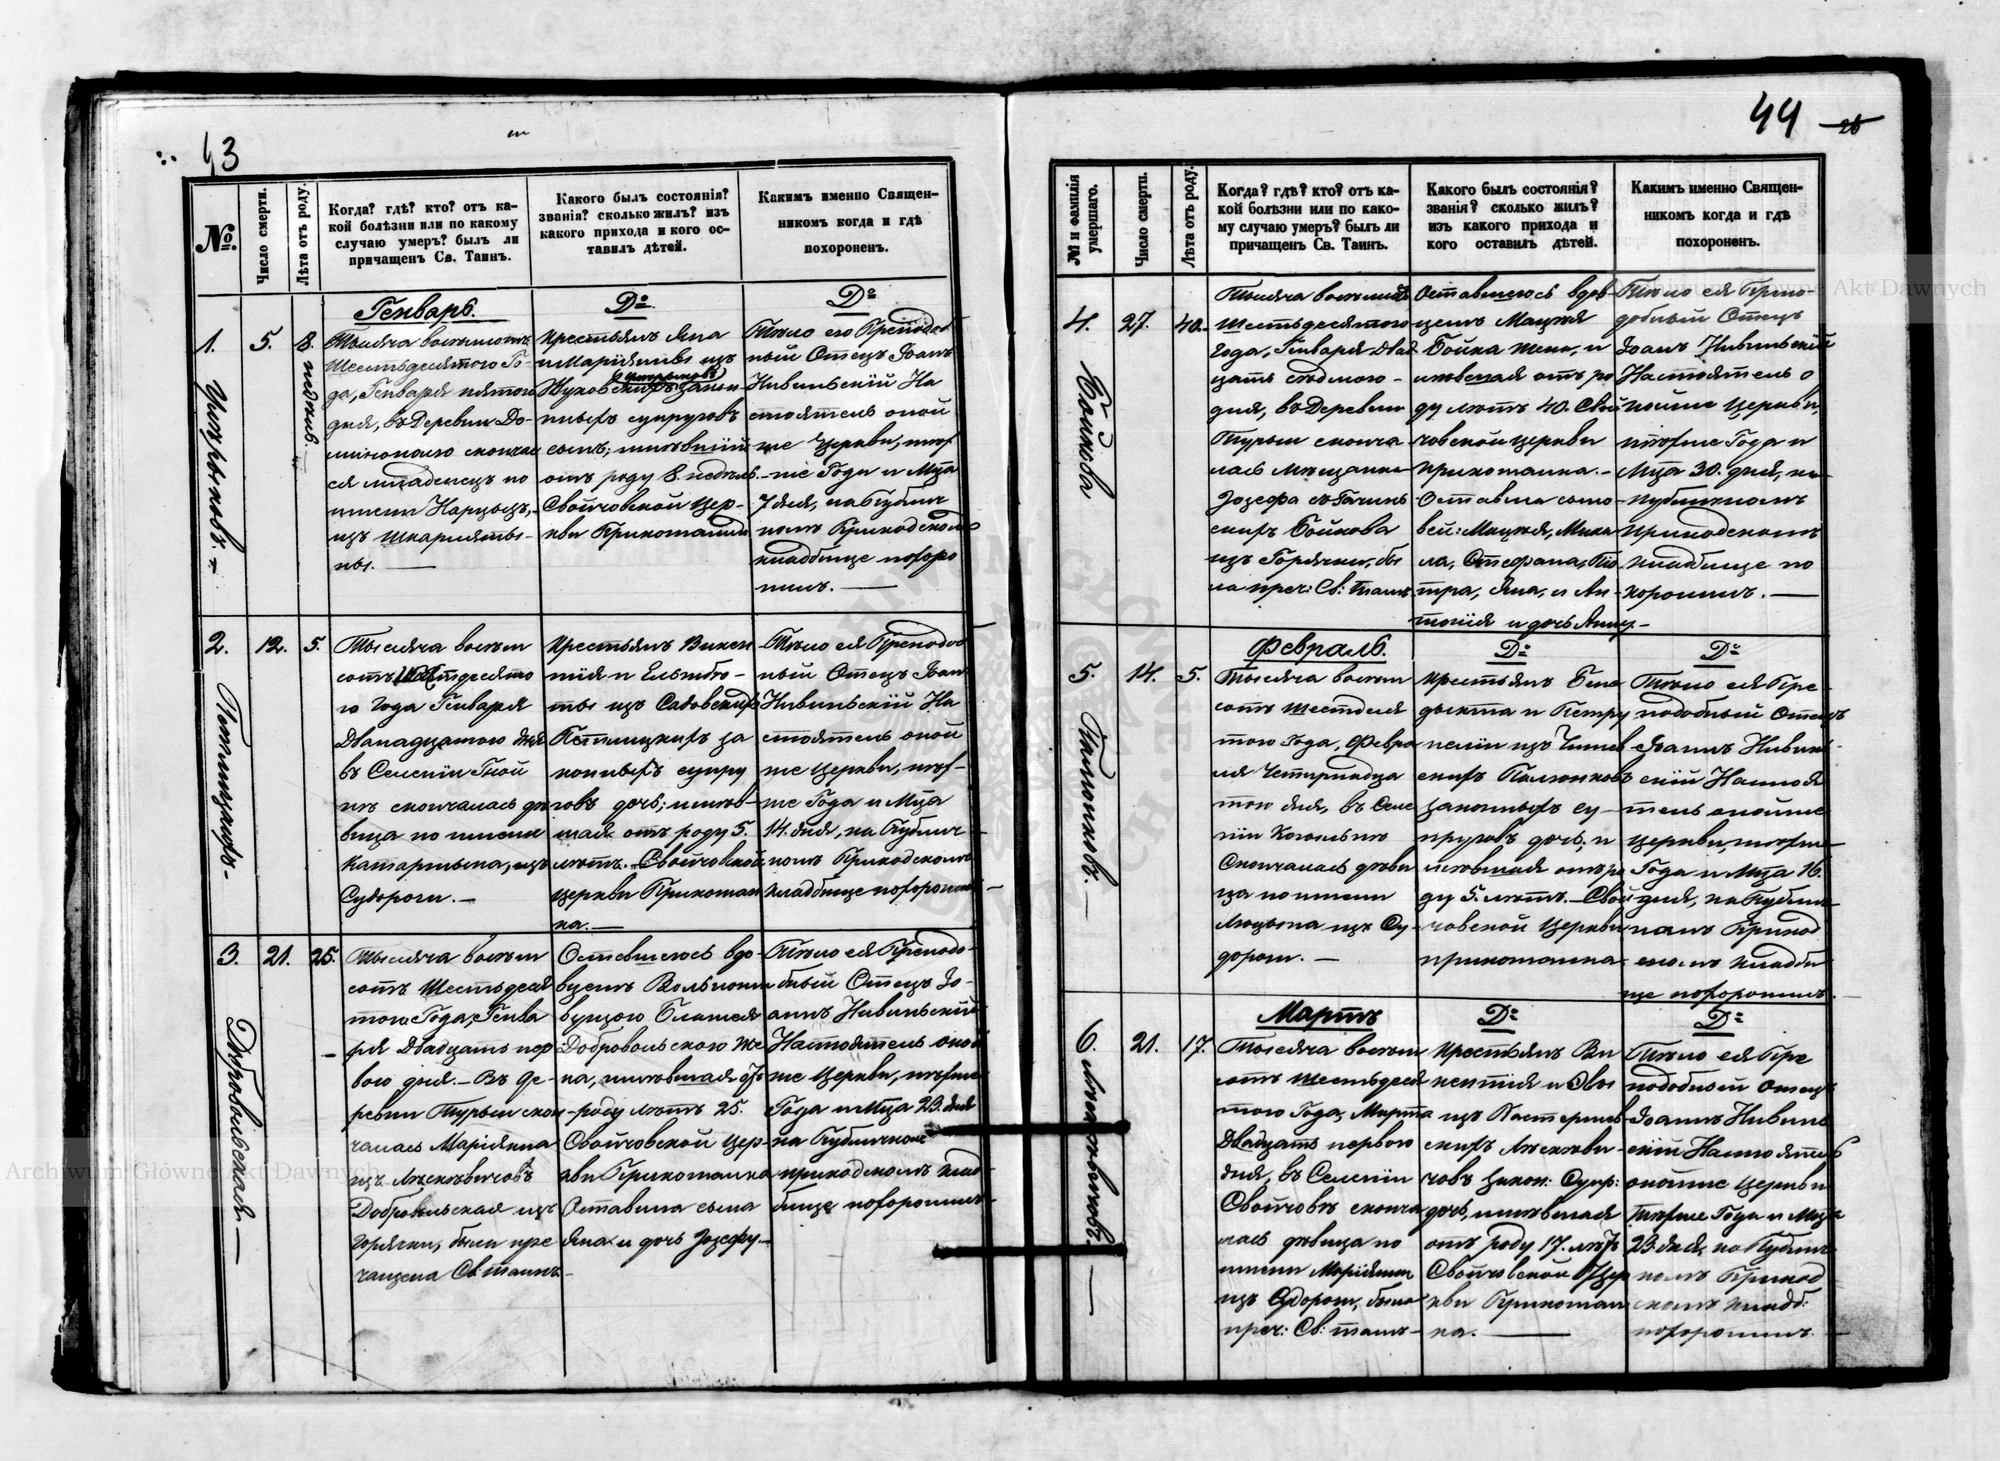 43
№.
Число смерти.
Лѣта отъ роду.
Когда? гдѣ? кто? отъ ка-
кой болѣзни или по какому
случаю умеръ? былъ ли
причащенъ Св. Таинъ.
Какого былъ состоянія?
званія? сколько жилъ? изъ
какого прихода и кого ос-
тавилъ дѣтей.
Каким именно Священ-
никомъ когда и гдѣ
похороненъ.
1.
5.
8. недѣль.
Генварь.
Тысяча восемьсотъ
Шестьдесятого Го-
да, Генваря пятого
дня, въ Деревни До-
скончал
ся младенецъ по
имени Нарцызъ,
изъ
ны.
До
Крестьянъ Яна
и Маріянны изъ
Жуковскихъ закон
ныхъ супруговъ
сынъ; имѣвшій
отъ роду 8. недѣль
Свойчовской Цер-
кви Прихожанинъ
До
Тѣло его Преподоб
ный Отецъ Іоанн
Нивиньскій На
стоятель оной
же Церкви, тогѡ
же Года и Мца
7 дня, на Публич
номъ Приходскомъ
кладбище похоро
нилъ.
2.
12.
5.
Тысяча восем
сотъ Шестдесято
го Года Генваря
Дванадцатого дня
въ Селеніи Гной
нѣ скончалась дѣ
вица по имени
Катаржина, изъ
Судороги.
Крестьянъ Викен
тія и Ельжбѣ-
ты изъ Садовскихъ
за
конныхъ супру
говъ дочь; имѣв-
шая отъ роду 5.
лѣтъ. Свойчовской
Церкви Прихожан
ка.
Тѣло ея Преподоб
ный Отецъ Іоан
Нивинскій На
стоятель оной
же Церкви, тогѡ-
же Года и Мца
14. дня, на Публич
номъ Приходскомъ
кладбище похоронилъ
3.
21.
25.
Добровольская
Тысяча восем
сотъ Шестьдеся
того Года, Генва
ря Двадцать пер
вого дня. Въ Де-
ревни Турьи скон
чалась Маріянна
изъ Лясковичовъ
Добровольская изъ
горячки, была при
чащена Св. таинъ
Оставшегося вдо-
вцемъ
Блажея
Добровольского Же
на, имѣвшая отъ
роду лѣтъ 25.
Свойчовской Цер-
кви Прихожанка
Оставила сына
Яна и дочь Зозефу
Тѣло ея Преподо-
бный Отецъ Іо-
аннъ Нивиньскій
Настоятель оной
же Церкви, тогоже
Года и Мца 23. дня
на Публичномъ
приходскомъ клад-
бище похоронилъ
44
26
№ и фамилія умершаго.
Число смерти.
Лѣта отъ роду.
Когда? гдѣ? кто? отъ ка-
кой болѣзни или по како-
му случаю умеръ? былъ ли
причащенъ Св. Таинъ.
Какого былъ состоянія?
званія? сколько жилъ?
изъ какого прихода и
кого оставилъ дѣтей.
Какимъ именно Священ-
никомъ когда и гдѣ
похороненъ.
4.
27.
40.
Бойкова
Тысяча восемьсотъ
Шестьдесятого
Года, Генваря Двад
цать седмого
дня, въ Деревни
Турьи сконча
лась Мѣщанка
Зозефа
Бойкова
изъ Горячки, бы
ла прич: Св: таинъ
Оставшегося вдов-
цемъ Мацѣя
Бойка жена, и
мѣвшая отъ ро
ду лѣтъ 40. Свой
човской церкви
прихожанка.
Оставила сыно
вей: Мацѣя, Миха
ла, Стефана, Пе
тра, Яна, и Ан-
тонія и дочь Анну
Тѣло ея Препо-
добный Отецъ
Іоанъ Нивиньскій
Настоятель о
нойже Церкви,
тогоже Года и
Мца 30. дня, на
публичномъ
Приходскомъ
кладбище по
хоронилъ.
5.
14.
5.
Февраль.
Тысяча восем
сотъ шестдеся
того Года, Февра
ля Четырнадца
того дня, въ Селе
ніи
Скончалась дѣви
ца по имени
изъ Су-
дорог.
До
Крестьянъ Бене
дыкта и Петру
нелли изъ
закон​ныхъ су-
пруговъ дочь, и
мѣвшая отъ ро
ду 5. лѣтъ. Свой
човской Церкви
прихожанка
До
Тѣло ея Пре-
подобный Отецъ
Іоаннъ Нивинь
скій Настоя
тель онойже
Церкви, тогоже
Года и Мца 16.
дня, на Публич
номъ Приход
скомъ кладби
ще похоронилъ.
6.
21.
17.
Мартъ
Тысяча восем
сотъ шестьдеся
того Года, Марта
Двадцать первого
дня, въ Селеніи
Свойчовѣ сконча
лась дѣвица по
имени Маріянна
изъ Судорог, была
прич: Св: таинъ
До
Крестьянъ Ви
кентія и Эвы
изъ
скихъ Лясковы
човъ закон: Супр:
дочь, имѣвшая
отъ роду 17. лѣтъ
Свойчовской Цер
кви Прихожан
ка.
До
Тѣло ея Пре
подобный Отецъ
Іоаннъ Нивинь
скій Настоятель
онойже Церкви
тогоже Года и Мца
23. дня, на Публич
номъ Приход
скомъ кладб:
похоронилъ.
Archiwum Główne Akt Dawnych
Archiwum Główne Akt Dawnych